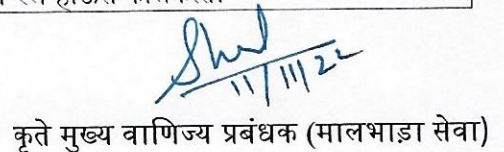 11/11/22
कृते मुख्य वाणिज्य प्रबंधक (मालभाड़ा सेवा)